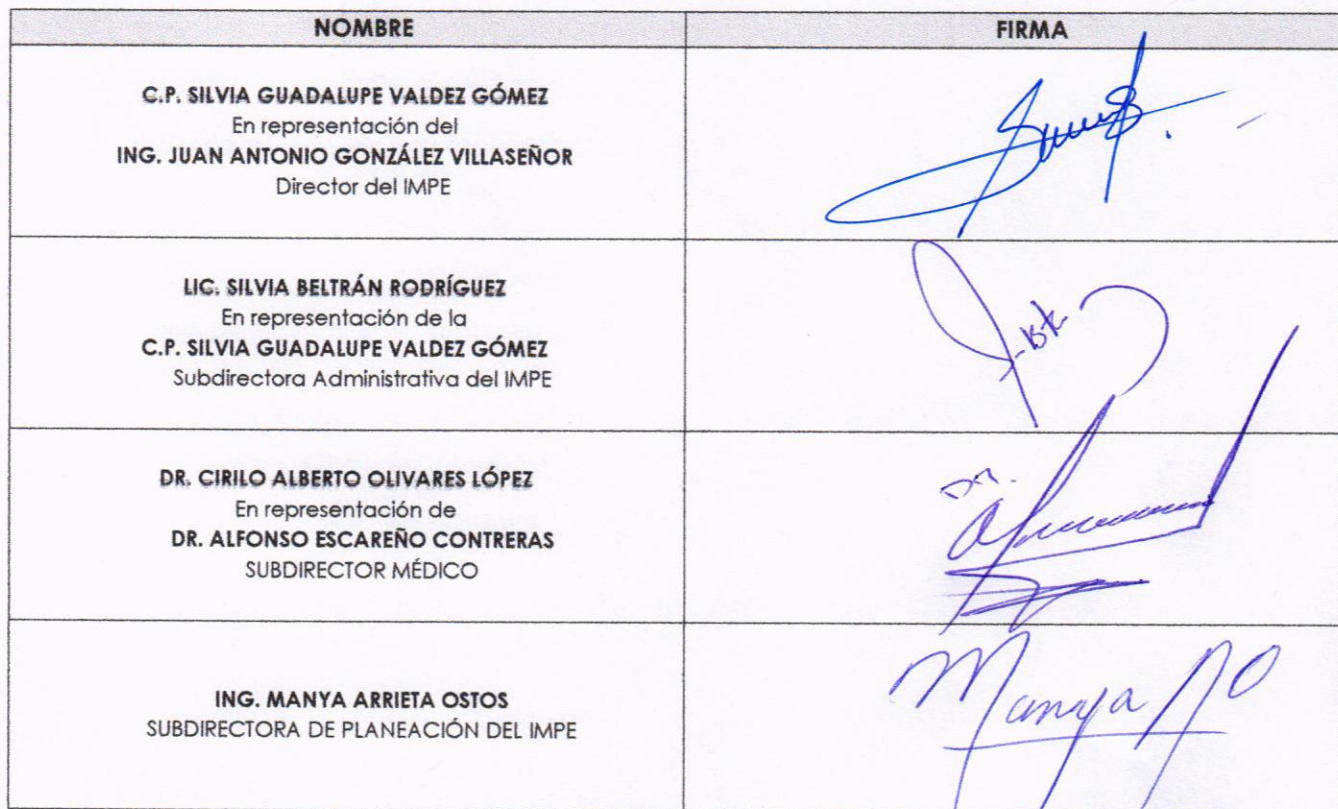 NOMBRE FIRMA
C.P. SILVIA GUADALUPE VALDEZ GÓMEZ
En representación del
ING. JUAN ANTONIO GONZÁLEZ VILLASEÑOR
Director del IMPE
LIC. SILVIA BELTRÁN RODRÍGUEZ
En representación de la
C.P. SILVIA GUADALUPE VALDEZ GÓMEZ
Subdirectora Administrativa del IMPE
DR. CIRILO ALBERTO OLIVARES LÓPEZ
En representación de
DR. ALFONSO ESCAREÑO CONTRERAS
SUBDIRECTOR MÉDICO
Dr.
ING. MANYA ARRIETA OSTOS
SUBDIRECTORA DE PLANEACIÓN DEL IMPE
Manya AO